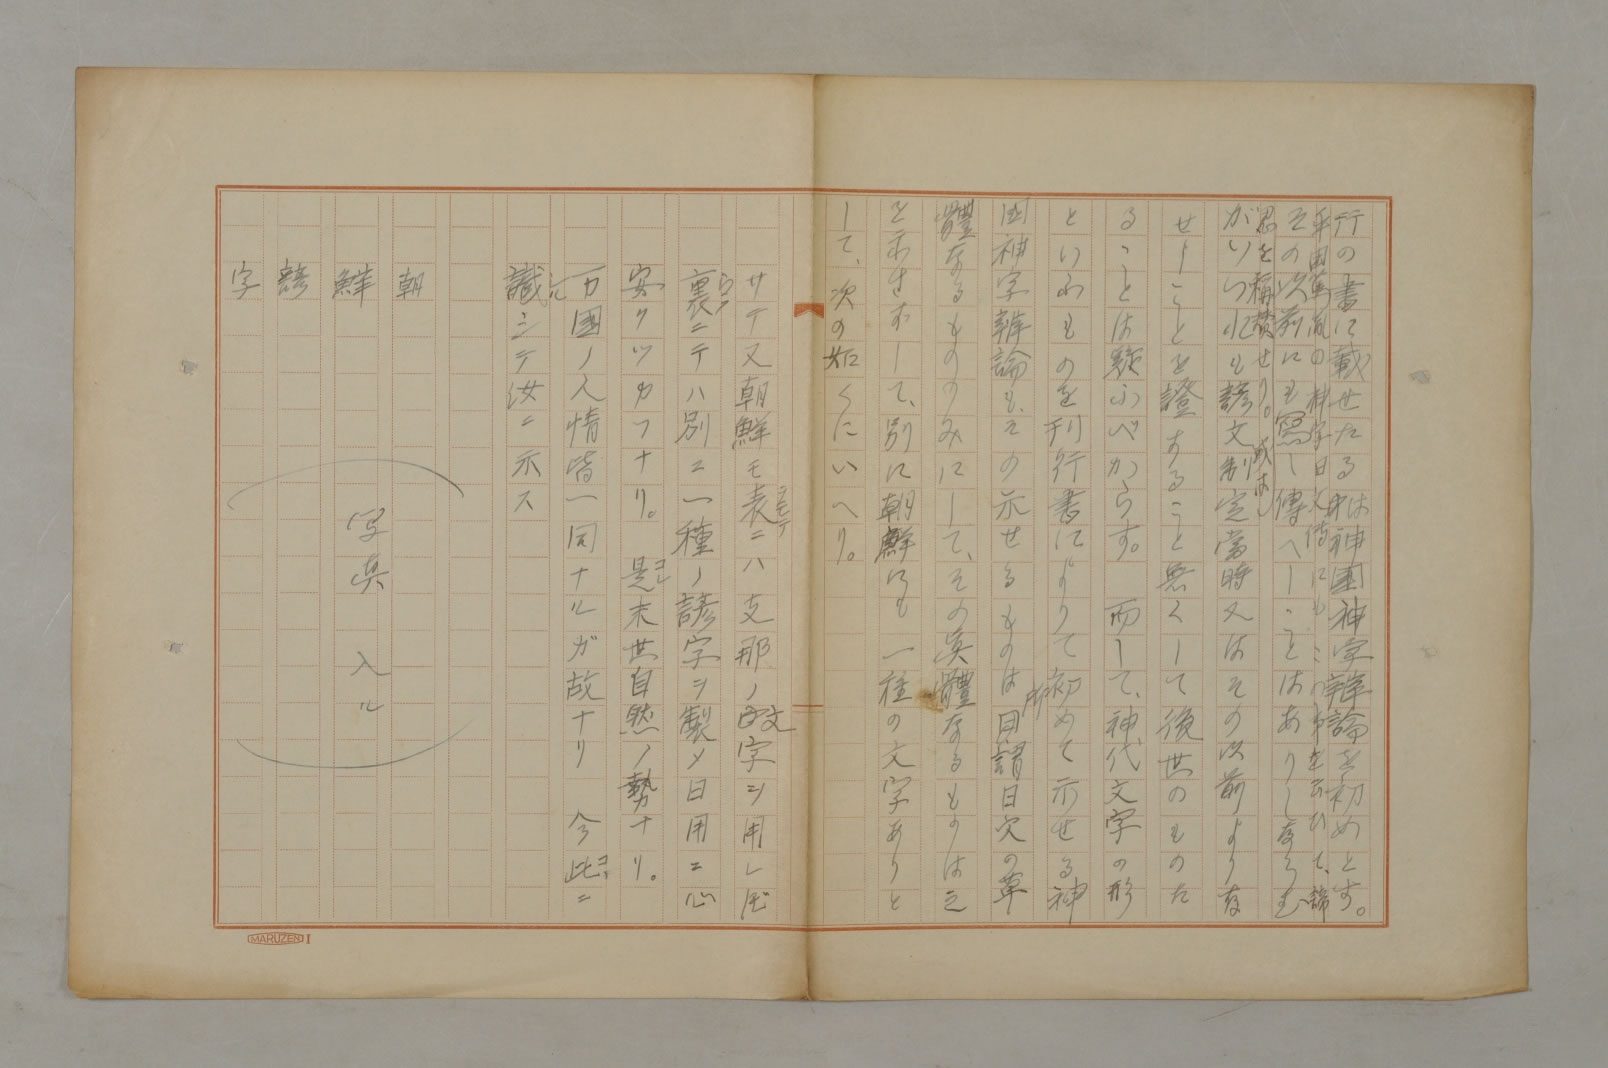 行の書に載せたるは神国神字辨論を初めとす。
その以前にも寫し傳へしことはありしならむ
がいつれも諺文制定當時又はその以前よりな
せしことを證すること無くして後世のものた
ることは疑ふべからす。而して、神代文字の形
といふものを刊行書によりて初めて示せる神
国神字辨論も、その示せるものは所謂日文の草
體なるもののみにして、その真體なるものは之
を示さすして、別に朝鮮にも一種の文字ありと
して、次の如くにいへり。
サテ又朝鮮モ表ニハ支那ノ文字ヲ用レ𪜈
裏ニテハ別ニ一種ノ諺字ヲ製メ日用ニ心
安クツカフナリ。是末世自然ノ勢ナリ。
万國ノ人情皆一同ナルガ故ナリ 今此ニ
識シテ汝ニ示ス
朝
鮮
諺
字
写真入ル
MARUZEN I